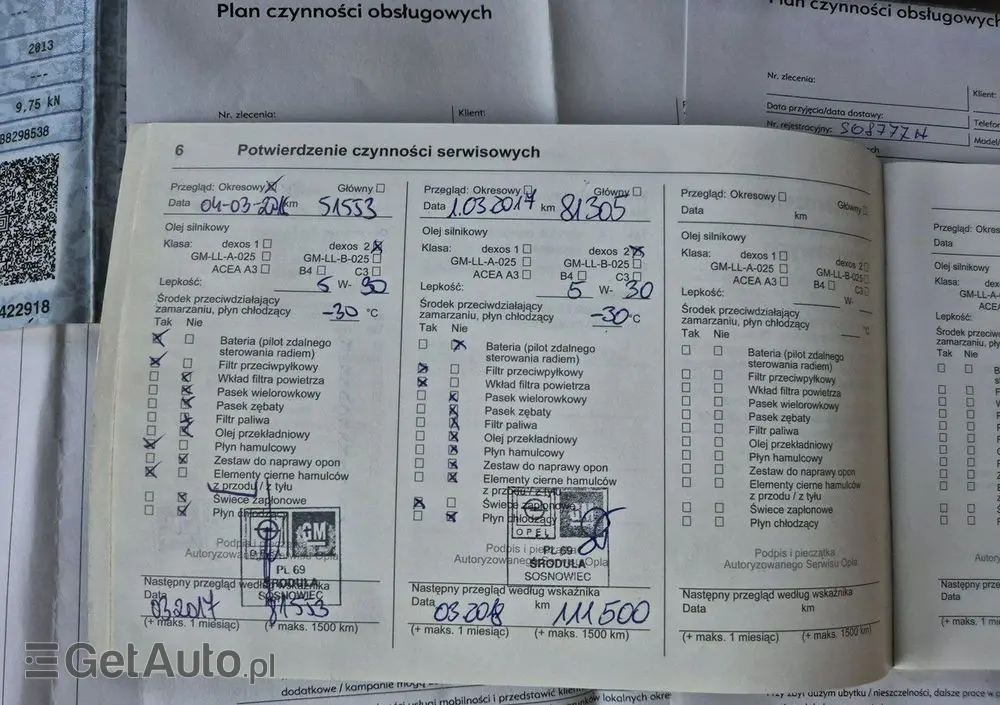 Plan czynności obsługowych
Plan czynności obsługowych
2013
---
9,75 kN
B8298538
422918
Nr. zlecenia:
Klient:
Nr. zlecenia:
Klient:
Data przyjęcia/data dostawy:
Telefon
Nr. rejestracyjny: SO8777H
Model/
6 Potwierdzenie czynności serwisowych
Przegląd: Okresowy Główny
Data 04-03-2016 km 51553
Olej silnikowy
Klasa: dexos 1 dexos 2
GM-LL-A-025 GM-LL-B-025
ACEA A3 B4 C3
Lepkość: 5 W- 30
Środek przeciwdziałający
zamarzaniu, płyn chłodzący -30 °C
Tak Nie
Bateria (pilot zdalnego
sterowania radiem)
Filtr przeciwpyłkowy
Wkład filtra powietrza
Pasek wielorowkowy
Pasek zębaty
Filtr paliwa
Olej przekładniowy
Płyn hamulcowy
Zestaw do naprawy opon
Elementy cierne hamulców
z przodu / z tyłu
Świece zapłonowe
Płyn chłodzący
Podpis i pieczątka
Autoryzowanego Serwisu Opla
GM
PL 69
ŚRODULA
SOSNOWIEC
Następny przegląd według wskaźnika
Data 03.2017 81553
(+ maks. 1 miesiąc) (+ maks. 1500 km)
Przegląd: Okresowy Główny
Data 1.03.2017 km 81305
Olej silnikowy
Klasa: dexos 1 dexos 2
GM-LL-A-025 GM-LL-B-025
ACEA A3 B4 C3
Lepkość: 5 W- 30
Środek przeciwdziałający
zamarzaniu, płyn chłodzący -30 °C
Tak Nie
Bateria (pilot zdalnego
sterowania radiem)
Filtr przeciwpyłkowy
Wkład filtra powietrza
Pasek wielorowkowy
Pasek zębaty
Filtr paliwa
Olej przekładniowy
Płyn hamulcowy
Zestaw do naprawy opon
Elementy cierne hamulców
z przodu / z tyłu
Świece zapłonowe
Płyn chłodzący
Podpis i pieczątka
Autoryzowanego Serwisu Opla
OPEL GM
PL 69
ŚRODULA
SOSNOWIEC
Następny przegląd według wskaźnika
Data 03.2018 km 111500
(+ maks. 1 miesiąc) (+ maks. 1500 km)
Przegląd: Okresowy Główny
Data km
Olej silnikowy
Klasa: dexos 1 dexos 2
GM-LL-A-025 GM-LL-B-025
ACEA A3 B4 C3
Lepkość: W-
Środek przeciwdziałający
zamarzaniu, płyn chłodzący °C
Tak Nie
Bateria (pilot zdalnego
sterowania radiem)
Filtr przeciwpyłkowy
Wkład filtra powietrza
Pasek wielorowkowy
Pasek zębaty
Filtr paliwa
Olej przekładniowy
Płyn hamulcowy
Zestaw do naprawy opon
Elementy cierne hamulców
z przodu / z tyłu
Świece zapłonowe
Płyn chłodzący
Podpis i pieczątka
Autoryzowanego Serwisu Opla
Następny przegląd według wskaźnika
Data km
(+ maks. 1 miesiąc) (+ maks. 1500 km)
Przegląd: Okres
Data
Olej silnikowy
Klasa: dex
GM-LL-A
ACEA
Lepkość:
Środek przeciw
zamarzaniu, pły
Tak Nie
Autoryz
Następny prze
Data
(+ maks. 1 mi
GetAuto.pl
dodatkowe / kampanie mogą
usługi mobilności i przedstawić klien
unków lokalnych okre
Przy zbyt dużym ubytku / nieszczelności, dalsze prace w p